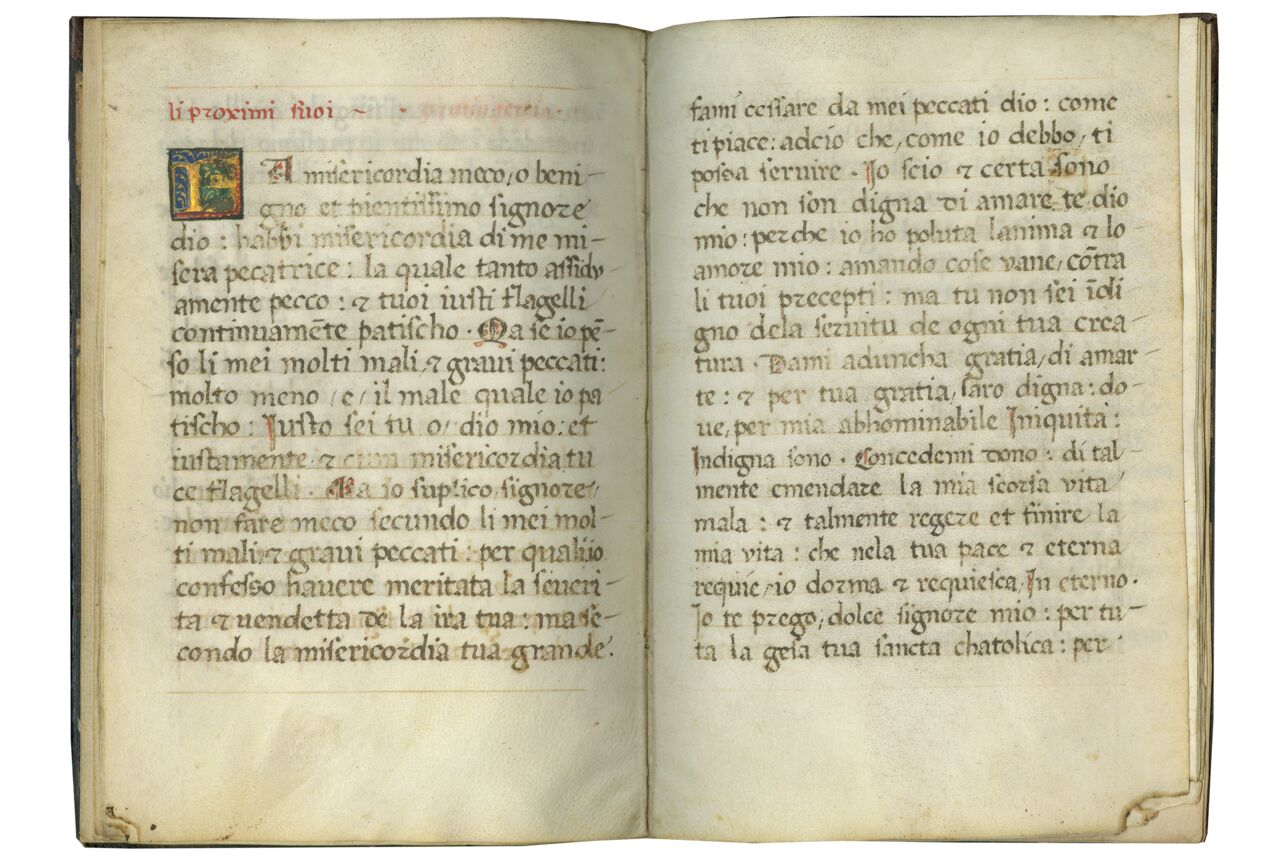 li proximi suoi ~
FA misericordia meco, o beni-
gno et pientissimo signore
dio : habbi misericordia di me mi-
sera pecatrice : la quale tanto assidu-
amente pecco : & tuoi iusti flagelli
continuamēte patischo . Ma se io pē-
so li mei molti mali, & gravi peccati:
molto meno /e/ il male quale io pa
tischo : Justo sei tu o/ dio mio: et
iustamente & cum misericordia tu
ce flagelli . Ma io suplico, signore,
non fare meco secundo li mei mol-
ti mali & graui peccati : per quali io
confesso havere meritata la severi-
ta & vendetta de la ira tua : ma se-
condo la misericordia tua grande.
fami cessare da mei peccati dio : come
ti piace: adcio che, come io debbo, ti
possa servire . Jo scio & certa sono
che non son digna di amare te dio
mio : perche io ho poluta lanima & lo
amore mio : amando cose vane, cōtra
li tuoi precepti : ma tu non sei īdi
gno dela servitu de ogni tua crea-
tura . Dami aduncha gratia, di amar-
te : & per tua gratia, saro digna : do-
ue, per mia abhominabile Iniquita :
Indigna sono . Concedemi dono : di tal-
mente emendare la mia scorsa vita
mala : & talmente regere et finire la
mia vita : che nela tua pace & eterna
requie, io dorma & requiesca, In eterno .
Jo te prego, dolce signore mio : per tu-
ta la gesa tua sancta chatolica : per